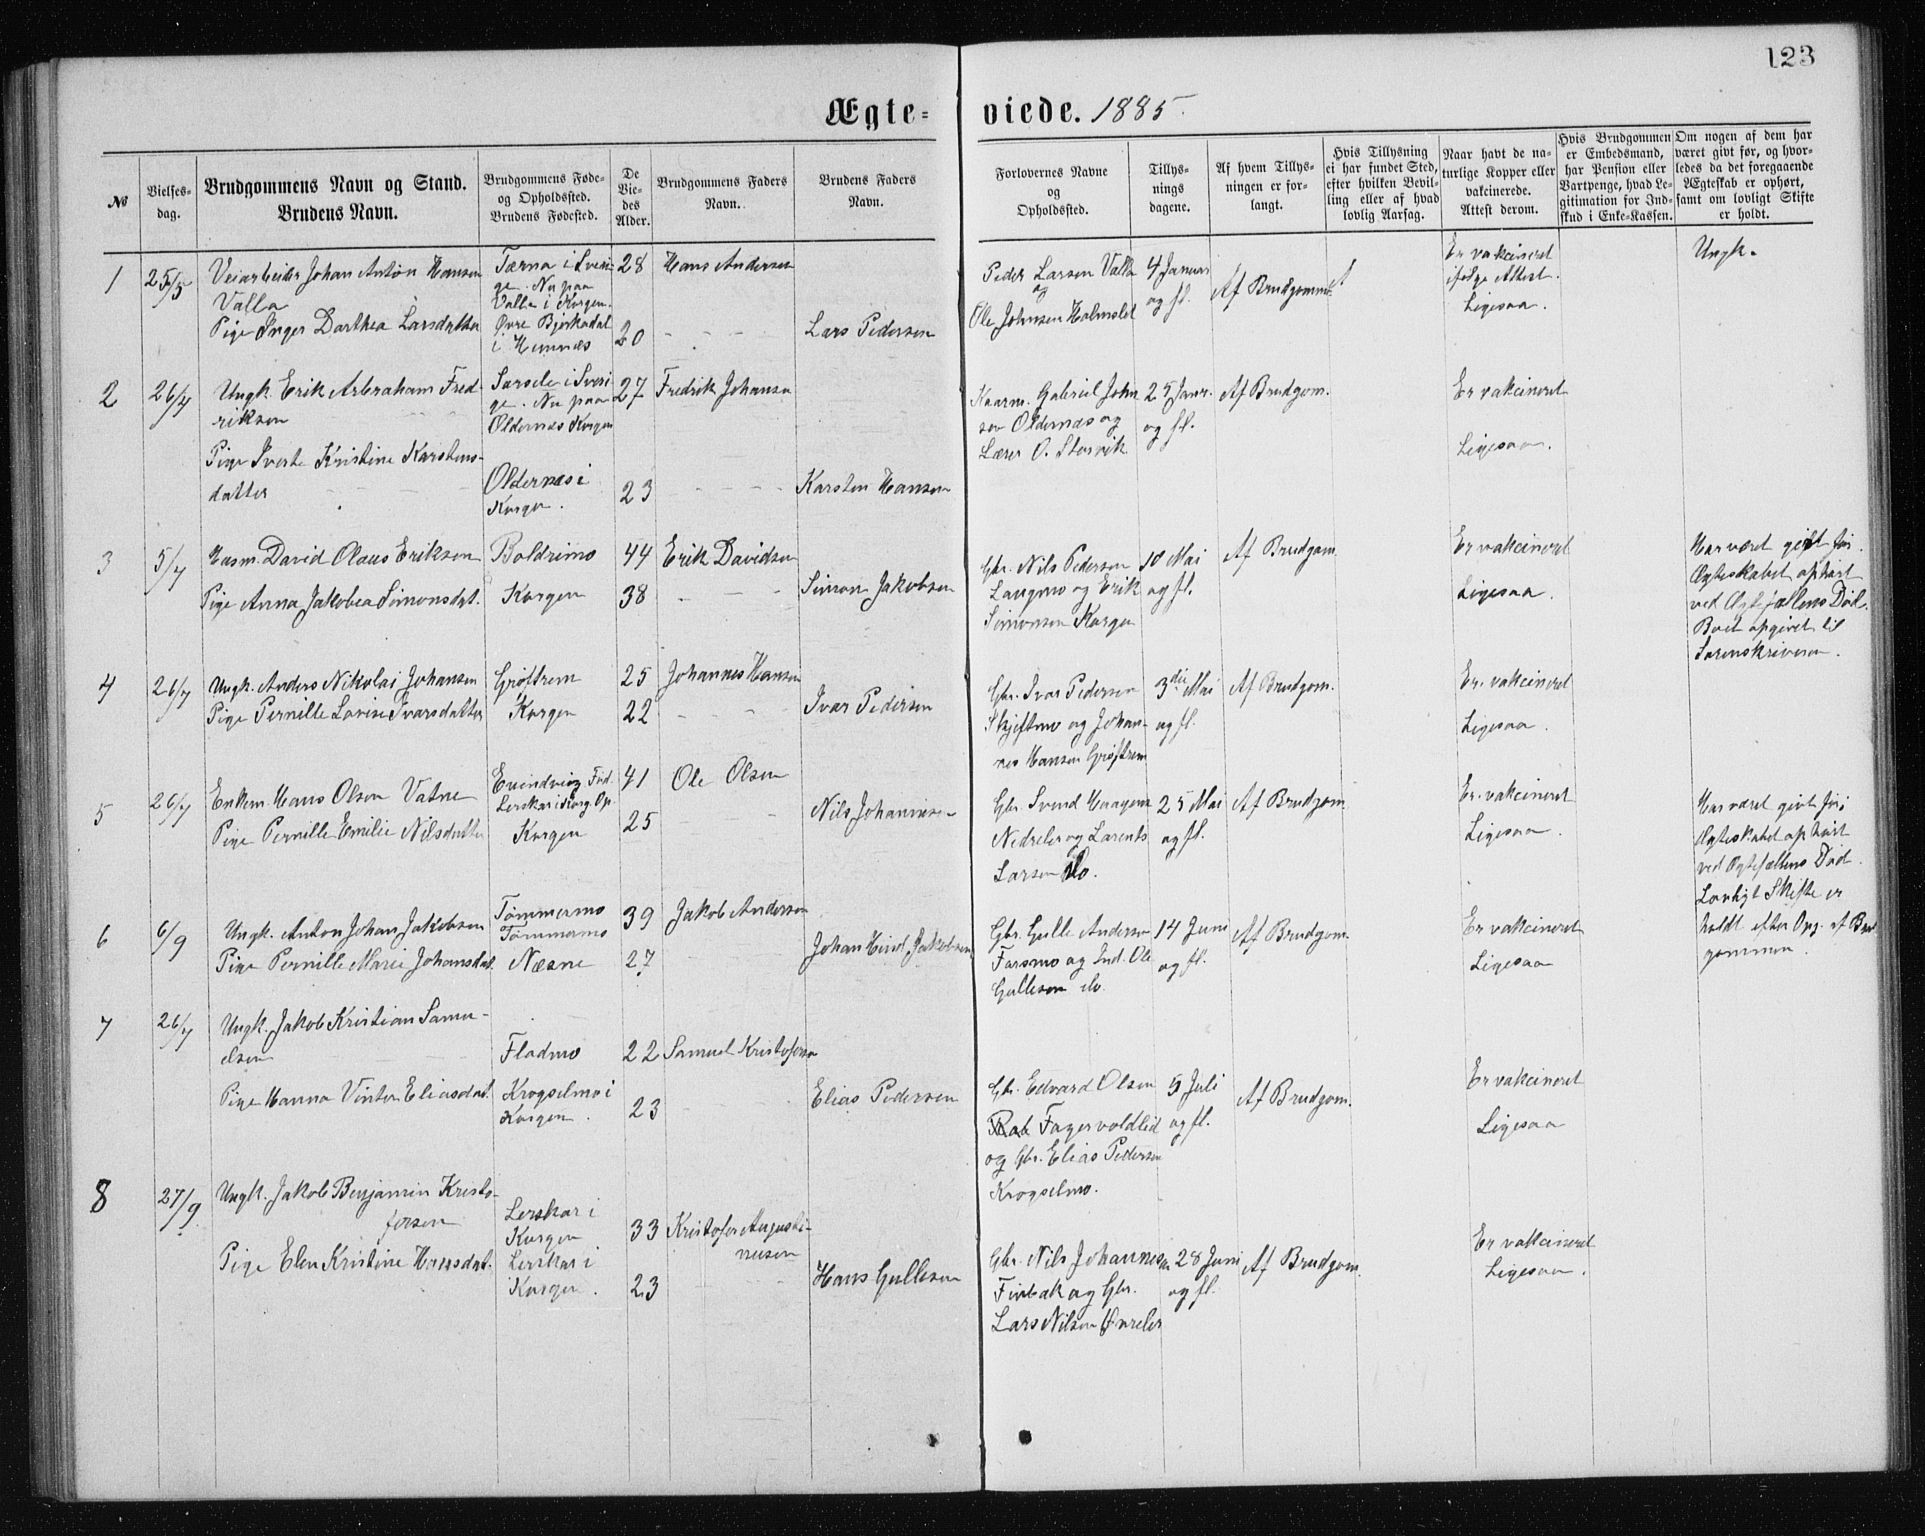 123
Ægte-viede. 1885.
№
Vielses-dag.
Brudgommens Navn og Stand.
Brudens Navn.
Brudgommens Føde-
og Opholdssted.
Brudens Fødested.
De
Vie-
des
Alder.
Brudgommens Faders
Navn.
Brudens Faders
Navn.
Forlovernes Navne
og
Opholdssted.
Tillys-
nings
dagene.
Af hvem Tillys-
ningen er for-
langt.
Hvis Tillysning
ei har fundet Sted,
efter hvilken Bevil-
ling eller af hvad
lovlig Aarsag.
Naar havt de na-
turlige Kopper eller
vakcinerede.
Attest derom.
Hvis Brudgommen
er Embedsmand,
har Pension eller
Vartpenge, hvad Le-
gitimation for Ind-
skud i Enke-Kassen.
Om nogen af dem har
været givt før, og hvor-
ledes da det foregaaende
Ægteskab er ophørt,
samt om lovligt Skifte
er holdt.
1
25/5
Veiarbeider Johan Anton Hansen
Valla
Pige Inger Dorthea Larsdatter
Tærna i Sveri-
ge. Nu paa
Valla i Korgen.
Øvre Bjerkadal
i Hemnæs
28
20
Hans Andersen
Lars Pedersen
Peder Larsen Valla
og
Ole Johnsen Holmslet
4 Januar
og fl.
Af Brudgommen
Er vakcineret
ifølge Attest.
Ligesaa.
Ungk.
2
26/7
Ungk. Erik Arbraham Fred-
riksen
Pige Iverte Kristine Karstens-
datter
Sorsele i Sveri-
ge. Nu paa
Oldernæs Korgen
Oldernæs i
Korgen.
27
23
Fredrik Johansen
Karsten Hansen
Kaarm. Gabriel John
sen Oldernæs og
Lærer O. Storvik
25 Janr.
og fl.
Af Brudgom.
Er vakcineret
Ligesaa.
3
5/7
Husm. David Olaus Eriksen
Pige Anna Jakobea Simonsdat.
Boldrimo
Korgen
44
38
Erik Davidsen
Simon Jakobsen
Gbr. Nils Pedersen
Langmo og Erik
Simonsen Korgen
10 Mai
og fl.
Af Brudgom.
Er vakcineret
Ligesaa.
Har været gift før.
Ægteskabet ophørt
ved Ægtefællens Død.
Boet opgivet til
Sorenskriveren.
4
26/7
Ungk. Anders Nikolai Johansen
Pige Pernille Lovise Ivarsdatter
Grøftrem
Korgen
25
22
Johannes Hansen
Ivar Pedersen
Gbr. Ivar Pedersen
Skjeftmo og Johan-
nes Hansen Grøftrem
3die Mai
og fl.
Af Brudgom.
Er vakcineret
Ligesaa.
5
26/7
Enkem. Hans Olsen Vatne
Pige Pernille Emilie Nilsdatter
Evindvig Fød.
Lerskar i Korg. Op.
Korgen
41
25
Ole Olsen
Nils Johannesen
Gbr. Svend Haagens
Nedreler og Larents
Larsen do.
25 Mai
og fl.
Af Brudgom.
Er vakcineret
Ligesaa.
Har været givt før;
Ægteskabet ophørt
ved Ægtefællens Død.
Lovligt Skifte er
holdt efter Opg. af Brud
gommen.
6
6/9
Ungk. Anton Johan Jakobsen
Pige Pernille Marie Johansdat.
Tømmermo
Tømmermo
Næsne
39
27
Jakob Andersen
Johan Hind. Jakobsen
Gbr. Gulle Andersen
Farsmo og Ind. Ole
Gullesen do.
14 Juni
og fl.
Af Brudgom.
Er vakcineret
Ligesaa
7
26/7
Ungk. Jakob Kristian Samu-
elsen
Pige Hanna Vinter Eliasdat.
Fladmo
Krogselmo i
Korgen.
22
23
Samuel Kristofersen
Elias Pedersen
Gbr. Edvard Olsen
Fagervoldlid
og Gbr. Elias Pedersen
Krogselmo.
5 Juli
og fl.
Af Brudgom.
Er vakcineret
Ligesaa
8
27/9
Ungk. Jakob Benjamin Kristo-
fersen
Pige Elen Kristine Hansdat.
Lerskar i
Korgen
Lerskar i
Korgen.
33
23
Kristofer Augusti-
nusen
Hans Gullesen
Gbr. Nils Johannesen
Finbak og Gbr.
Lars Nilsen Øvreler
28 Juni
og fl.
Af Brudgom.
Er vakcineret
Ligesaa.